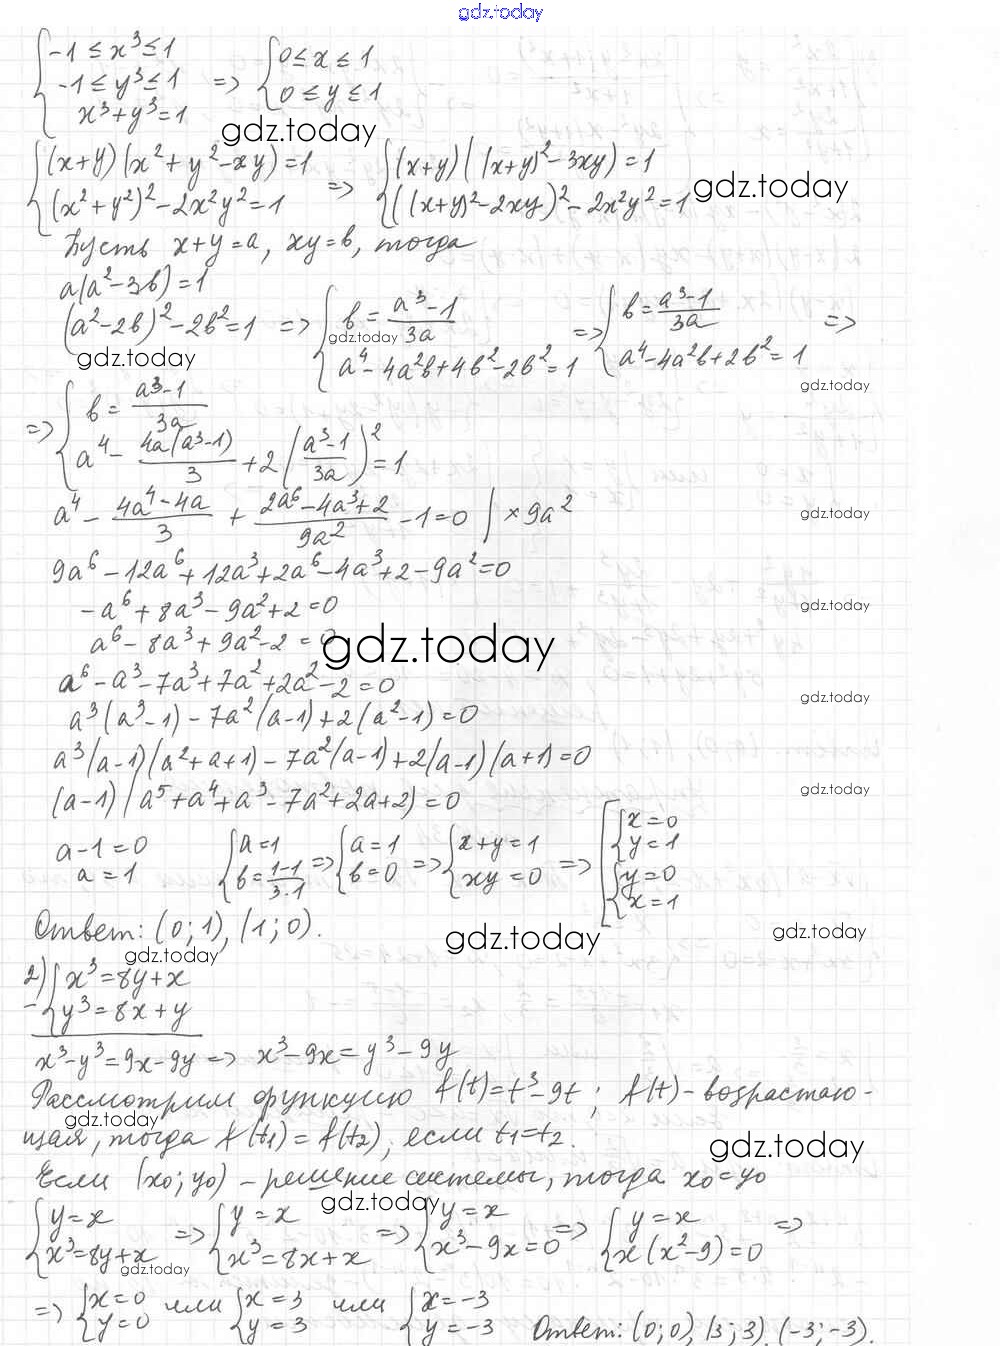 gdz.today
{-1 ≤ x³ ≤ 1
-1 ≤ y³ ≤ 1 => {0 ≤ x ≤ 1
x³+y³=1 0 ≤ y ≤ 1
gdz.today
{(x+y)(x²+y²-xy)=1 => {(x+y)((x+y)²-3xy)=1
(x²+y²)²-2x²y²=1 ((x+y)²-2xy)²-2x²y²=1
gdz.today
Пусть x+y=a, xy=b, тогда
a(a²-3b)=1
(a²-2b)²-2b²=1 => {b=(a³-1)/3a => {b=(a³-1)/3a =>
a⁴-4a²b+4b²-2b²=1 a⁴-4a²b+2b²=1
gdz.today
gdz.today
gdz.today
=> {b=(a³-1)/3a
a⁴-4a(a³-1)/3+2((a³-1)/3a)²=1
a⁴-(4a⁴-4a)/3+(2a⁶-4a³+2)/9a²-1=0 | ×9a²
gdz.today
9a⁶-12a⁶+12a³+2a⁶-4a³+2-9a²=0
-a⁶+8a³-9a²+2=0
gdz.today
a⁶-8a³+9a²-2=0
gdz.today
a⁶-a³-7a³+7a²+2a²-2=0
gdz.today
a³(a³-1)-7a²(a-1)+2(a²-1)=0
a³(a-1)(a²+a+1)-7a²(a-1)+2(a-1)(a+1)=0
gdz.today
(a-1)(a⁵+a⁴+a³-7a²+2a+2)=0
a-1=0
a=1
{a=1 => {a=1 => {x+y=1 => [{x=0
b=(1-1)/3·1 b=0 xy=0 y=1
{y=0
x=1
Ответ: (0;1), (1;0).
gdz.today
gdz.today
gdz.today
2) {x³=8y+x
- y³=8x+y
x³-y³=9x-9y => x³-9x=y³-9y
Рассмотрим функцию f(t)=t³-9t; f(t)-возрастаю-
gdz.today
щая, тогда f(t₁)=f(t₂), если t₁=t₂.
gdz.today
Если (x₀;y₀) - решение системы, тогда x₀=y₀
gdz.today
{y=x => {y=x => {y=x => {y=x =>
x³=8y+x x³=8x+x x³-9x=0 x(x²-9)=0
gdz.today
=> {x=0 или {x=3 или {x=-3
y=0 y=3 y=-3 Ответ: (0;0), (3;3), (-3;-3).